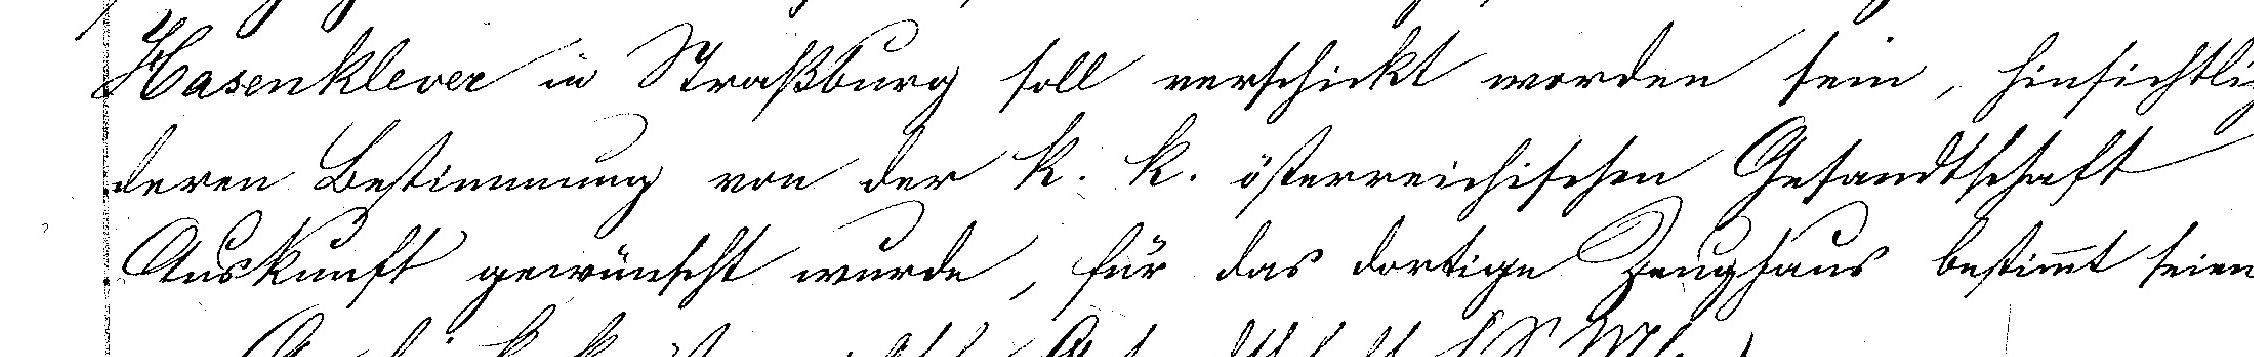 Hasenklever in Straßburg soll verschickt worden sein, hinsichtlich
deren Bestimmung von der k. k. österreichischen Gesandtschaft
Auskunft gewünscht wurde, für das dortige Zeughaus bestimmt seien